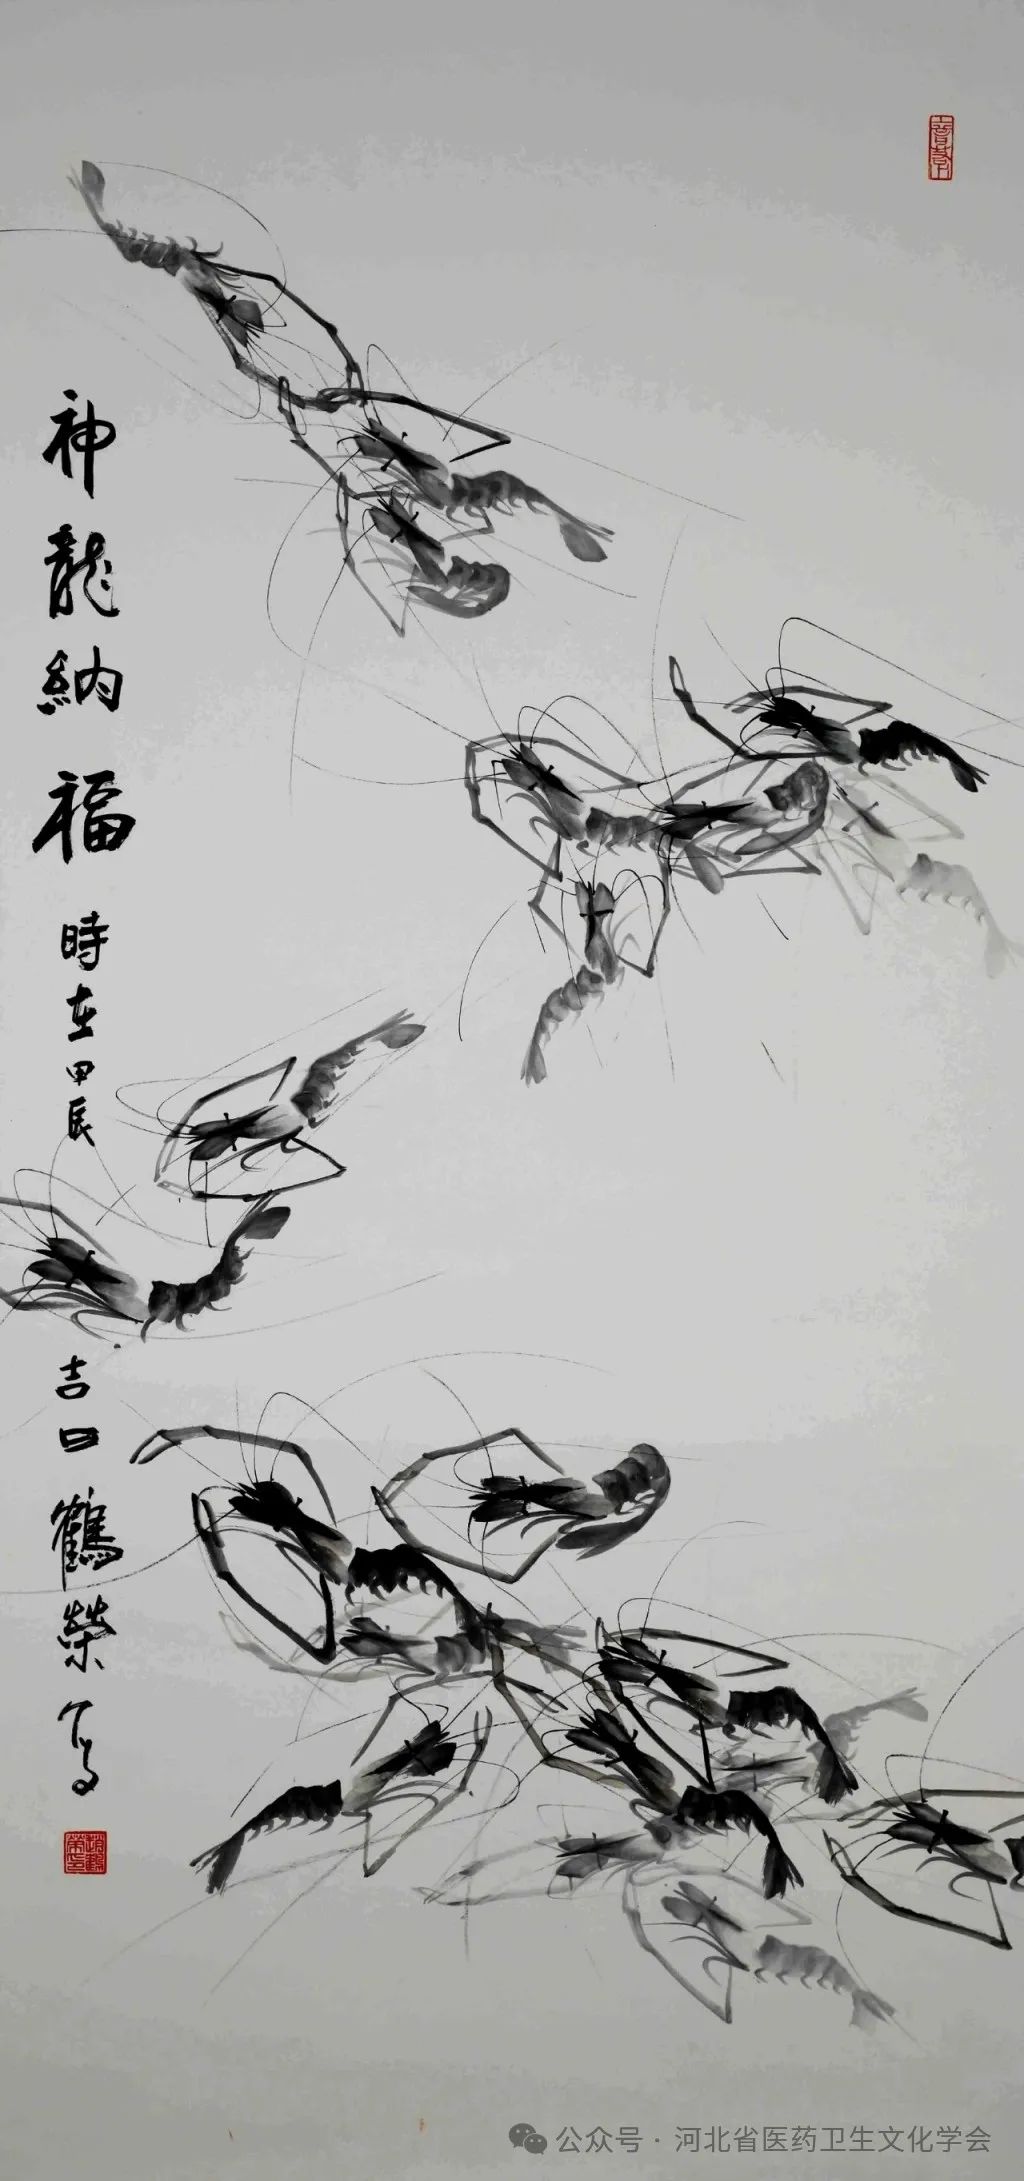 神龍納福 時在甲辰 吉日 鶴榮写
公众号·河北省医药卫生文化学会